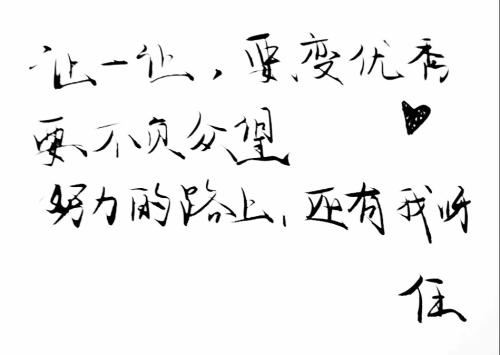 让一让，要变优秀
要不负众望
努力的路上，还有我呀